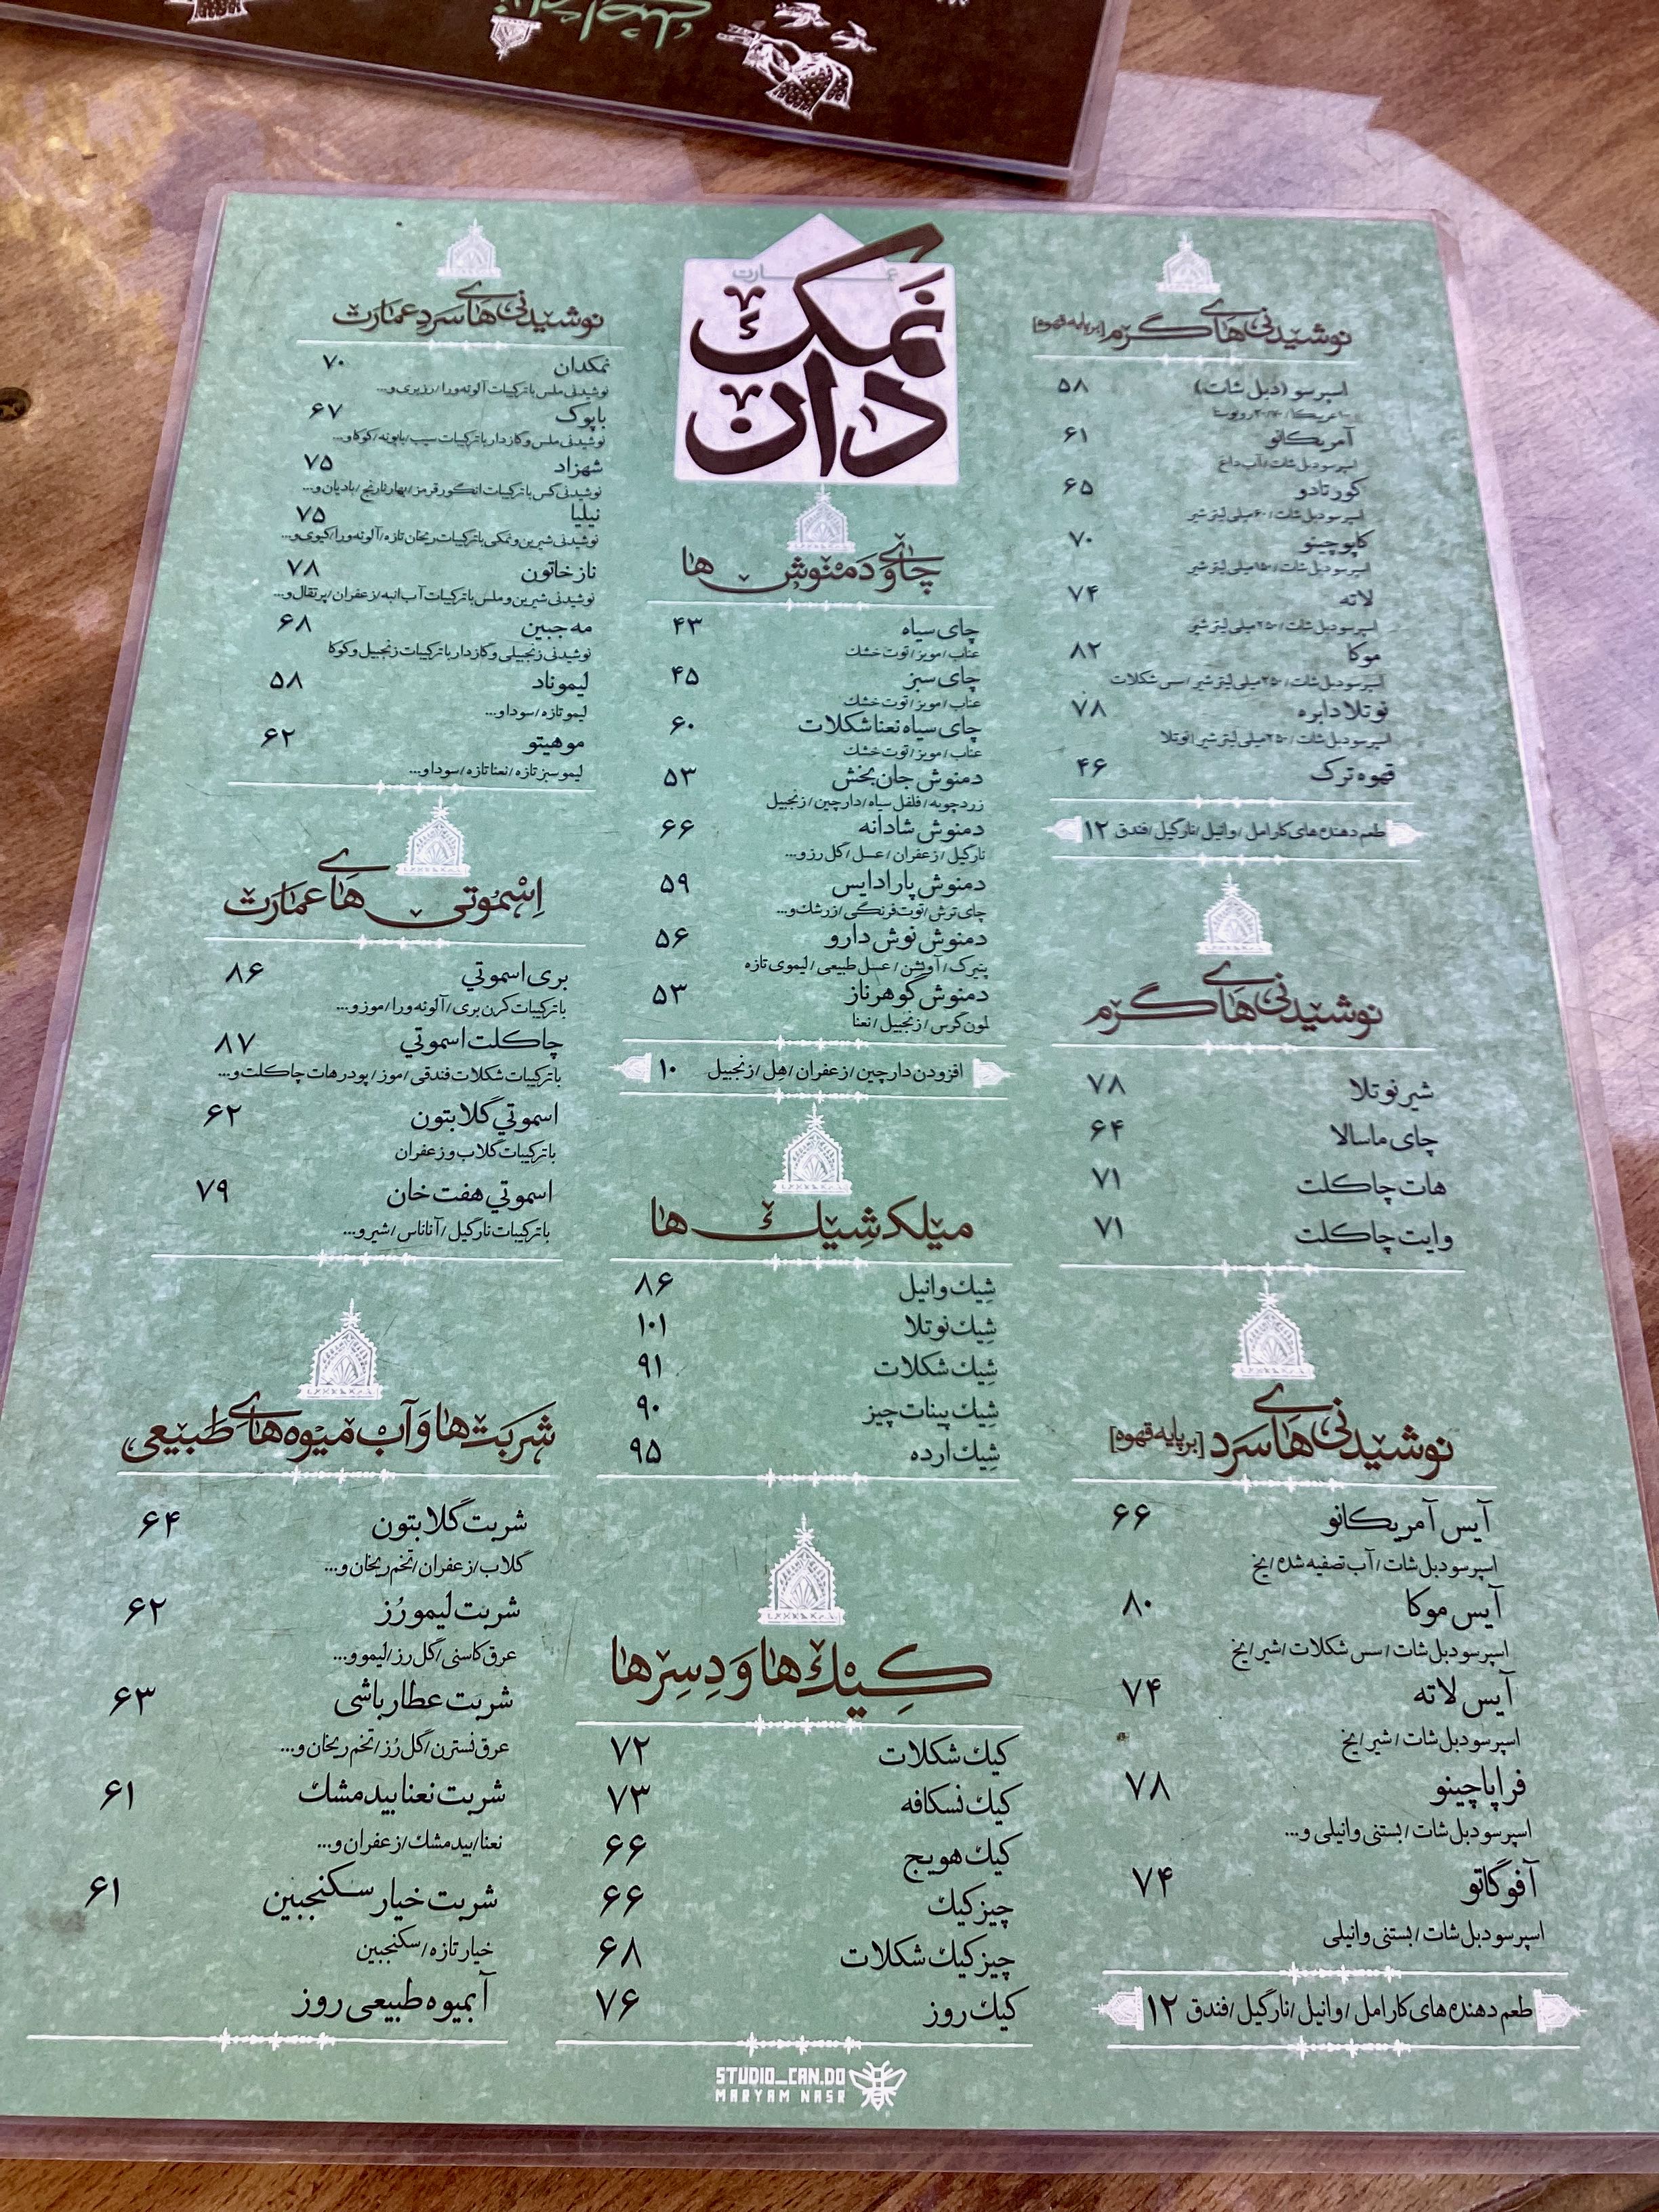 عمارت
نمکدان
نوشیدنی‌های گرم [برپایه قهوه]
اسپرسو (دبل شات) ۵۸
آمریکانو ۶۱
اسپرسو دبل شات / آب داغ
کورتادو ۶۵
اسپرسو دبل شات / ۶۰ میلی لیتر شیر
کاپوچینو ۷۰
اسپرسو دبل شات / ۱۵۰ میلی لیتر شیر
لاته ۷۴
اسپرسو دبل شات / ۲۵۰ میلی لیتر شیر
موکا ۸۲
اسپرسو دبل شات / ۲۵۰ میلی لیتر شیر / سس شکلات
نوتلا دابره ۷۸
اسپرسو دبل شات / ۲۵۰ میلی لیتر شیر / نوتلا
قهوه ترک ۴۶
طعم دهنده های کارامل / وانیل / نارگیل / فندق ۱۲
نوشیدنی‌های گرم
شیر نوتلا ۷۸
چای ماسالا ۶۴
هات چاکلت ۷۱
وایت چاکلت ۷۱
نوشیدنی‌های سرد [برپایه قهوه]
آیس آمریکانو ۶۶
اسپرسو دبل شات / آب تصفیه شده / یخ
آیس موکا ۸۰
اسپرسو دبل شات / سس شکلات / شیر / یخ
آیس لاته ۷۴
اسپرسو دبل شات / شیر / یخ
فراپاچینو ۷۸
اسپرسو دبل شات / بستنی وانیلی و...
آفوگاتو ۷۴
اسپرسو دبل شات / بستنی وانیلی
طعم دهنده های کارامل / وانیل / نارگیل / فندق ۱۲
چای و دمنوش ها
چای سیاه ۴۳
عناب / مویز / توت خشک
چای سبز ۴۵
عناب / مویز / توت خشک
چای سیاه نعنا شکلات ۶۰
عناب / مویز / توت خشک
دمنوش جان بخش ۵۳
زردچوبه / فلفل سیاه / دارچین / زنجبیل
دمنوش شادانه ۶۶
نارگیل / زعفران / عسل / گل رز و...
دمنوش پارادایس ۵۹
چای ترش / توت فرنگی / زرشک و...
دمنوش نوش دارو ۵۶
پنیرک / آویشن / عسل طبیعی / لیموی تازه
دمنوش گوهرناز ۵۳
لمون گرس / زنجبیل / نعنا
افزودن دارچین / زعفران / هل / زنجبیل ۱۰
میلک شیک ها
شیک وانیل ۸۶
شیک نوتلا ۱۰۱
شیک شکلات ۹۱
شیک پینات چیز ۹۰
شیک ارده ۹۵
کیک ها و دسرها
کیک شکلات ۷۲
کیک نسکافه ۷۳
کیک هویج ۶۶
چیزکیک ۶۶
چیزکیک شکلات ۶۸
کیک روز ۷۶
نوشیدنی های سرد عمارت
نمکدان ۷۰
نوشیدنی ملس با ترکیبات آلوئه ورا / رزبری و...
باپوک ۶۷
نوشیدنی ملس و گازدار با ترکیبات سیب / بابونه / کوکا و...
شهزاد ۷۵
نوشیدنی گس با ترکیبات انگور قرمز / بهارنارنج / بادیان و...
نیلیا ۷۵
نوشیدنی شیرین و نمکی با ترکیبات ریحان تازه / آلوئه ورا / کیوی و...
نازخاتون ۷۸
نوشیدنی شیرین و ملس با ترکیبات آب انبه / زعفران / پرتقال و...
مه جبین ۶۸
نوشیدنی زنجبیلی و گازدار با ترکیبات زنجبیل و کوکا
لیموناد ۵۸
لیمو تازه / سودا و...
موهیتو ۶۲
لیمو سبز تازه / نعنا تازه / سودا و...
اسموتی های عمارت
بری اسموتی ۸۶
با ترکیبات کرن بری / آلوئه ورا / موز و...
چاکلت اسموتی ۸۷
با ترکیبات شکلات فندقی / موز / پودر هات چاکلت و...
اسموتی گلابتون ۶۲
با ترکیبات گلاب و زعفران
اسموتی هفت خان ۷۹
با ترکیبات نارگیل / آناناس / شیر و...
شربت ها و آب میوه های طبیعی
شربت گلابتون ۶۴
گلاب / زعفران / تخم ریحان و...
شربت لیمو رُز ۶۲
عرق کاسنی / گل رز / لیمو و...
شربت عطارباشی ۶۳
عرق نسترن / گل رُز / تخم ریحان و...
شربت نعنا بیدمشک ۶۱
نعنا / بیدمشک / زعفران و...
شربت خیار سکنجبین ۶۱
خیار تازه / سکنجبین
آبمیوه طبیعی روز
STUDIO_CAN.DO
MARYAM NASR